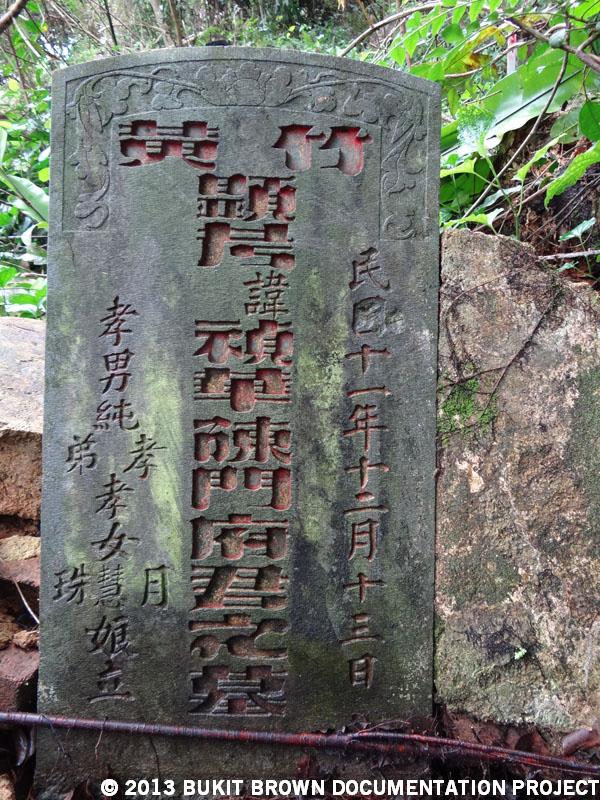 竹黃
民國十一年十二月十三日
顯考諱禎華陳門府君之墓
孝男純孝弟
孝女慧月珠娘立
© 2013 BUKIT BROWN DOCUMENTATION PROJECT